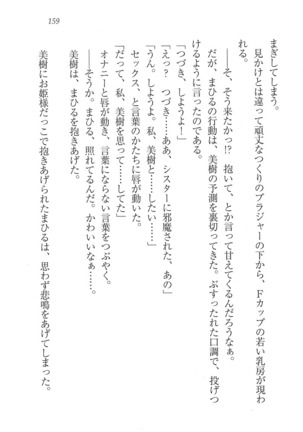 159
まぎしてしまう。
見かけとは違って頑丈なつくりのブラジャーの下から、Fカップの若い乳房が現わ
れる。
――そ、そう来たかっ!?　抱いて、とか言って甘えてくるんだろうなぁ。
だが、まひるの行動は、美樹の予測を裏切ってきた。ぶすったれた口調で、投げつ
けるように言ったのである。
「つづき、しようよー」
「えっ？　つづき……ああ、シスターに邪魔された、あの」
「うん。しようよ。私、美樹と……したい……」
セックス、と言葉のかたちに唇が動いた。
「だって、私、美樹を思って……してた」
オナニーと唇が動き、言葉にならない言葉をつぶやく。
――そうか。まひる、照れてるんだ。かわいいなぁ……。
美樹は、まひるを抱きあげた。
美樹にお姫様だっこで抱きあげられたまひるは、思わず悲鳴をあげてしまった。